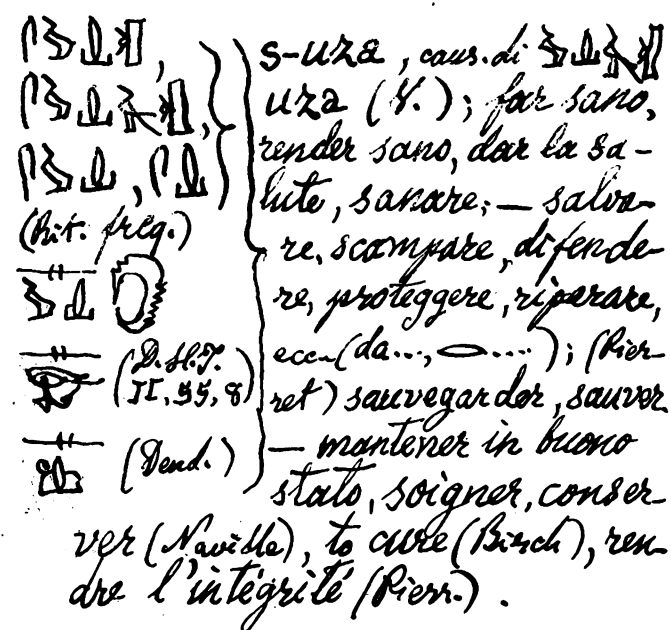 s-uza, caus. di
uza (V.); far sano,
render sano, dar la sa-
lute, sanare; — salva-
(Rit. freq.)
re, scampare, difende-
re, proteggere, riparare,
ecc. (da..., ....); (Pier-
(D.H.J.
II, 55, 8)
ret) sauvegarder, sauver
(Dend.)
— mantener in buono
stato, soigner, conser-
ver (Naville), to cure (Birch), ren-
dre l'intégrité (Pierr.).